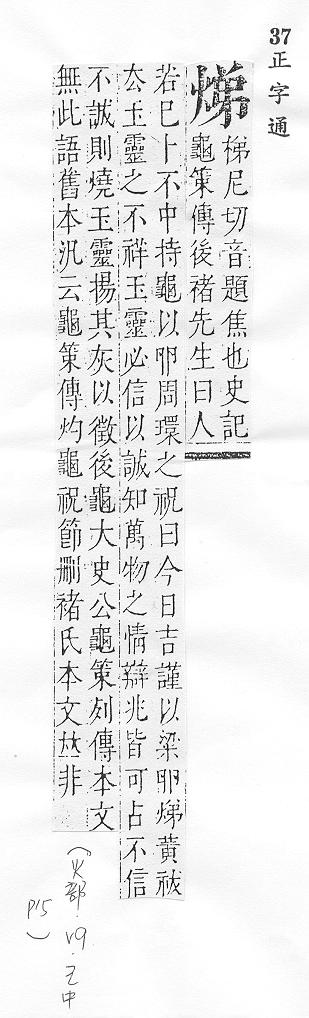 37
正字通
焍
梯尼切音題焦也史記
龜策傳後褚先生曰人
若巳卜不中持龜以卵周環之祝曰今日吉謹以梁卵焍黃祓
厺玉靈之不祥玉靈必信以誠知萬物之情辯兆皆可占不信
不誠則燒玉靈揚其灰以徵後龜大史公龜策列傳本文
無此語舊本汎云龜策傳灼龜祝節刪褚氏本文𠀤非
(火部. v9. 中
P15)